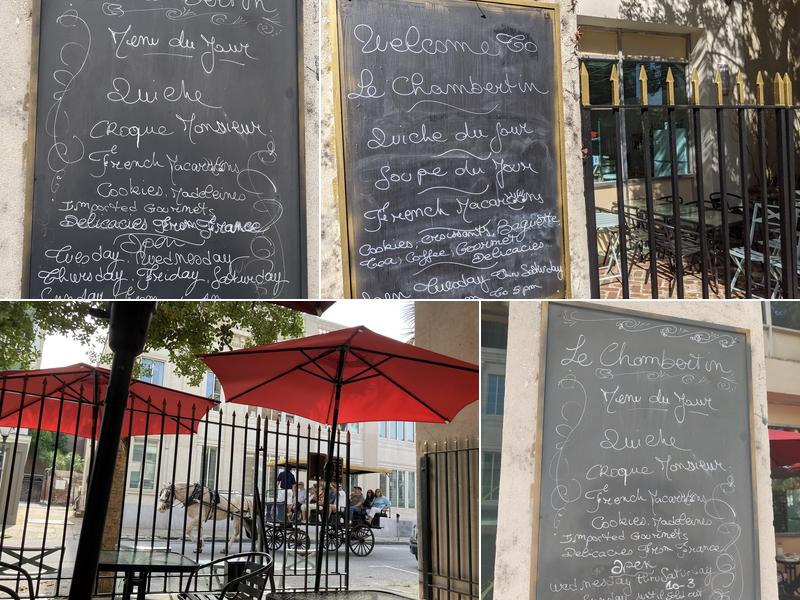 Menu du Jour
Quiche
Croque Monsieur.
French Macarons
Cookies. Madeleines
Imported Gourmets
Delicacies From France
Open
Tuesday, Wednesday
Thursday, Friday, Saturday
Welcome To
Le Chambertin
Quiche du Jour
Soupe du Jour
French Macarons
Cookies, croissants, Baguette,
Tea, Coffee, Gourmet,
Delicacies
Open Tuesday Thru Saturday
to 5 pm
Le Chambertin
Menu du Jour
Quiche
Croque Monsieur.
French Macarons
Cookies. Madeleines
Imported Gourmets
Delicacies From France
Open
Wednesday thru Saturday
10-3
Sunday until sold out